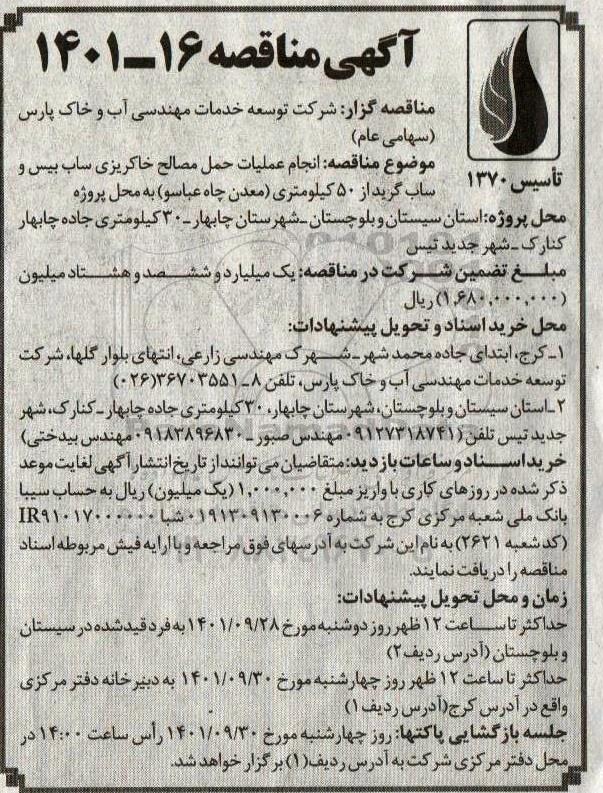 آگهی مناقصه ۱۶-۱۴۰۱
تأسیس ۱۳۷۰
مناقصه گزار: شرکت توسعه خدمات مهندسی آب و خاک پارس
(سهامی عام)
موضوع مناقصه: انجام عملیات حمل مصالح خاکریزی ساب بیس و
ساب گرید از ۵۰ کیلومتری (معدن چاه عباسو) به محل پروژه
محل پروژه: استان سیستان و بلوچستان ـ شهرستان چابهار ـ ۳۰ کیلومتری جاده چابهار
کنارک ـ شهر جدید تیس
مبلغ تضمین شرکت در مناقصه: یک میلیارد و ششصد و هشتاد میلیون
(۱,۶۸۰,۰۰۰,۰۰۰) ریال
محل خرید اسناد و تحویل پیشنهادات:
۱ـ کرج، ابتدای جاده محمد شهر ـ شهرک مهندسی زارعی، انتهای بلوار گلها، شرکت
توسعه خدمات مهندسی آب و خاک پارس، تلفن ۸ـ۳۶۷۰۳۵۵۱(۰۲۶)
۲ـ استان سیستان و بلوچستان، شهرستان چابهار، ۳۰ کیلومتری جاده چابهار ـ کنارک، شهر
جدید تیس تلفن (۰۹۱۲۷۳۱۸۷۴۱ مهندس صبور ـ ۰۹۱۸۳۸۹۶۸۳۰ مهندس بیدختی)
خرید اسناد و ساعات بازدید: متقاضیان می‌توانند از تاریخ انتشار آگهی لغایت موعد
ذکر شده در روزهای کاری با واریز مبلغ ۱,۰۰۰,۰۰۰ (یک میلیون) ریال به حساب سیبا
بانک ملی شعبه مرکزی کرج به شماره ۰۱۹۱۳۰۹۱۳۰۰۰۶ شبا IR۹۱۰۱۷۰۰۰۰۰۰
(کد شعبه ۲۶۲۱) به نام این شرکت به آدرسهای فوق مراجعه و با ارایه فیش مربوطه اسناد
مناقصه را دریافت نمایند.
زمان و محل تحویل پیشنهادات:
حداکثر تا ساعت ۱۲ ظهر روز دوشنبه مورخ ۱۴۰۱/۰۹/۲۸ به فرد قید شده در سیستان
و بلوچستان (آدرس ردیف ۲)
حداکثر تا ساعت ۱۲ ظهر روز چهارشنبه مورخ ۱۴۰۱/۰۹/۳۰ به دبیرخانه دفتر مرکزی
واقع در آدرس کرج (آدرس ردیف ۱)
جلسه بازگشایی پاکتها: روز چهارشنبه مورخ ۱۴۰۱/۰۹/۳۰ رأس ساعت ۱۴:۰۰ در
محل دفتر مرکزی شرکت به آدرس ردیف (۱) برگزار خواهد شد.